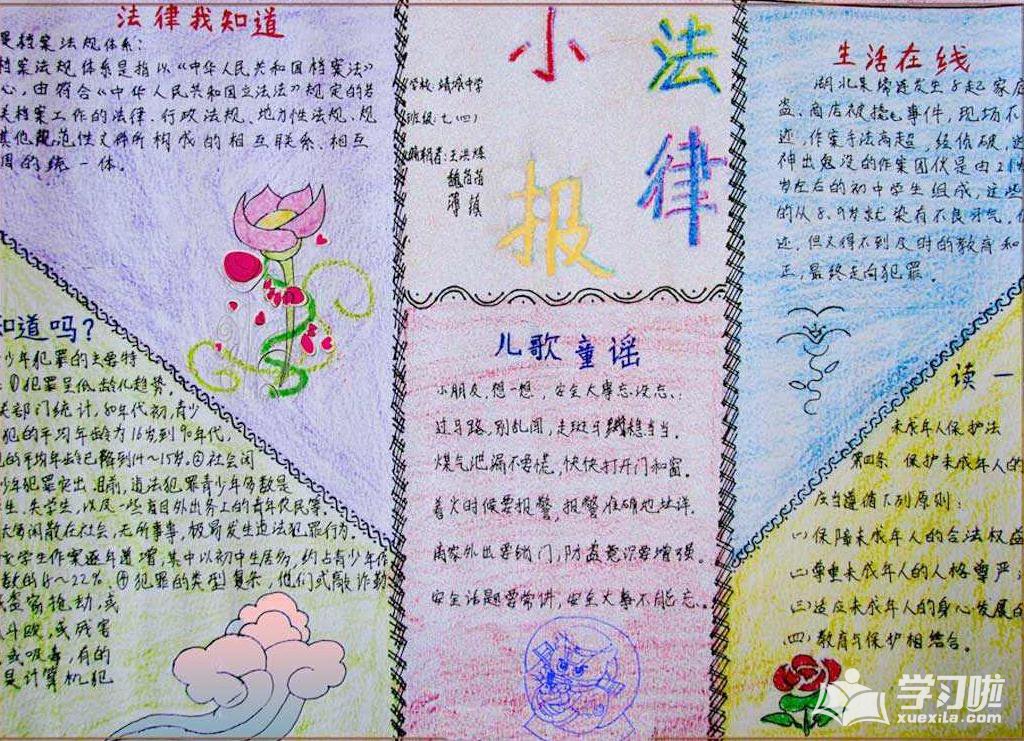 法律我知道
是档案法规体系：
档案法规体系是指以《中华人民共和国档案法》
心，由符合《中华人民共和国立法法》规定的若
关档案工作的法律、行政法规、地方性法规、规
其他规范性文件所构成的相互联系、相互
调的统一体。
小法
律
报
学校：靖城中学
班级：七（四）
编辑者：王洪烁
魏苗苗
薄
生活在线
湖北某接连发生8起家庭
盗、商店被撬事件，现场不
迹，作案手法高超，经侦破，这
神出鬼没的作案团伙是由
岁左右的初中学生组成，这些
的从8、9岁就染有不良习气，
迹，但又得不到及时的教育和
正，最终走向犯罪。
知道吗？
少年犯罪的主要特
：①犯罪呈低龄化趋势，
关部门统计，80年代初，青少
犯的平均年龄为16岁到90年代，
的平均年龄已降到14～15岁。②社会闲
少年犯罪突出，目前，违法犯罪青少年多数是
生、失学生，以及一些盲目外出务工的青年农民等。
大多闲散在社会，无所事事，极易发生违法犯罪行为。
学生作案逐年递增，其中以初中生居多，约占青少年作
数的 ～22%。④犯罪的类型复杂，他们或敲诈勒
盗窃抢劫，或
斗殴，或残害
，或吸毒，有的
是计算机犯
儿歌童谣
小朋友，想一想，安全大事忘没忘：
过马路，别乱闯，走斑马线稳当当。
煤气泄漏不要慌，快快打开门和窗。
着火时候要报警，报警准确地址详。
离家外出要锁门，防盗意识要增强。
安全话题要常讲，安全大事不能忘。
读一
未成年人保护法
第四条 保护未成年人的
应当遵循下列原则：
（一）保障未成年人的合法权益
（二）尊重未成年人的人格尊严；
（三）适应未成年人的身心发展的
（四）教育与保护相结合。
学习啦
xuexila.com